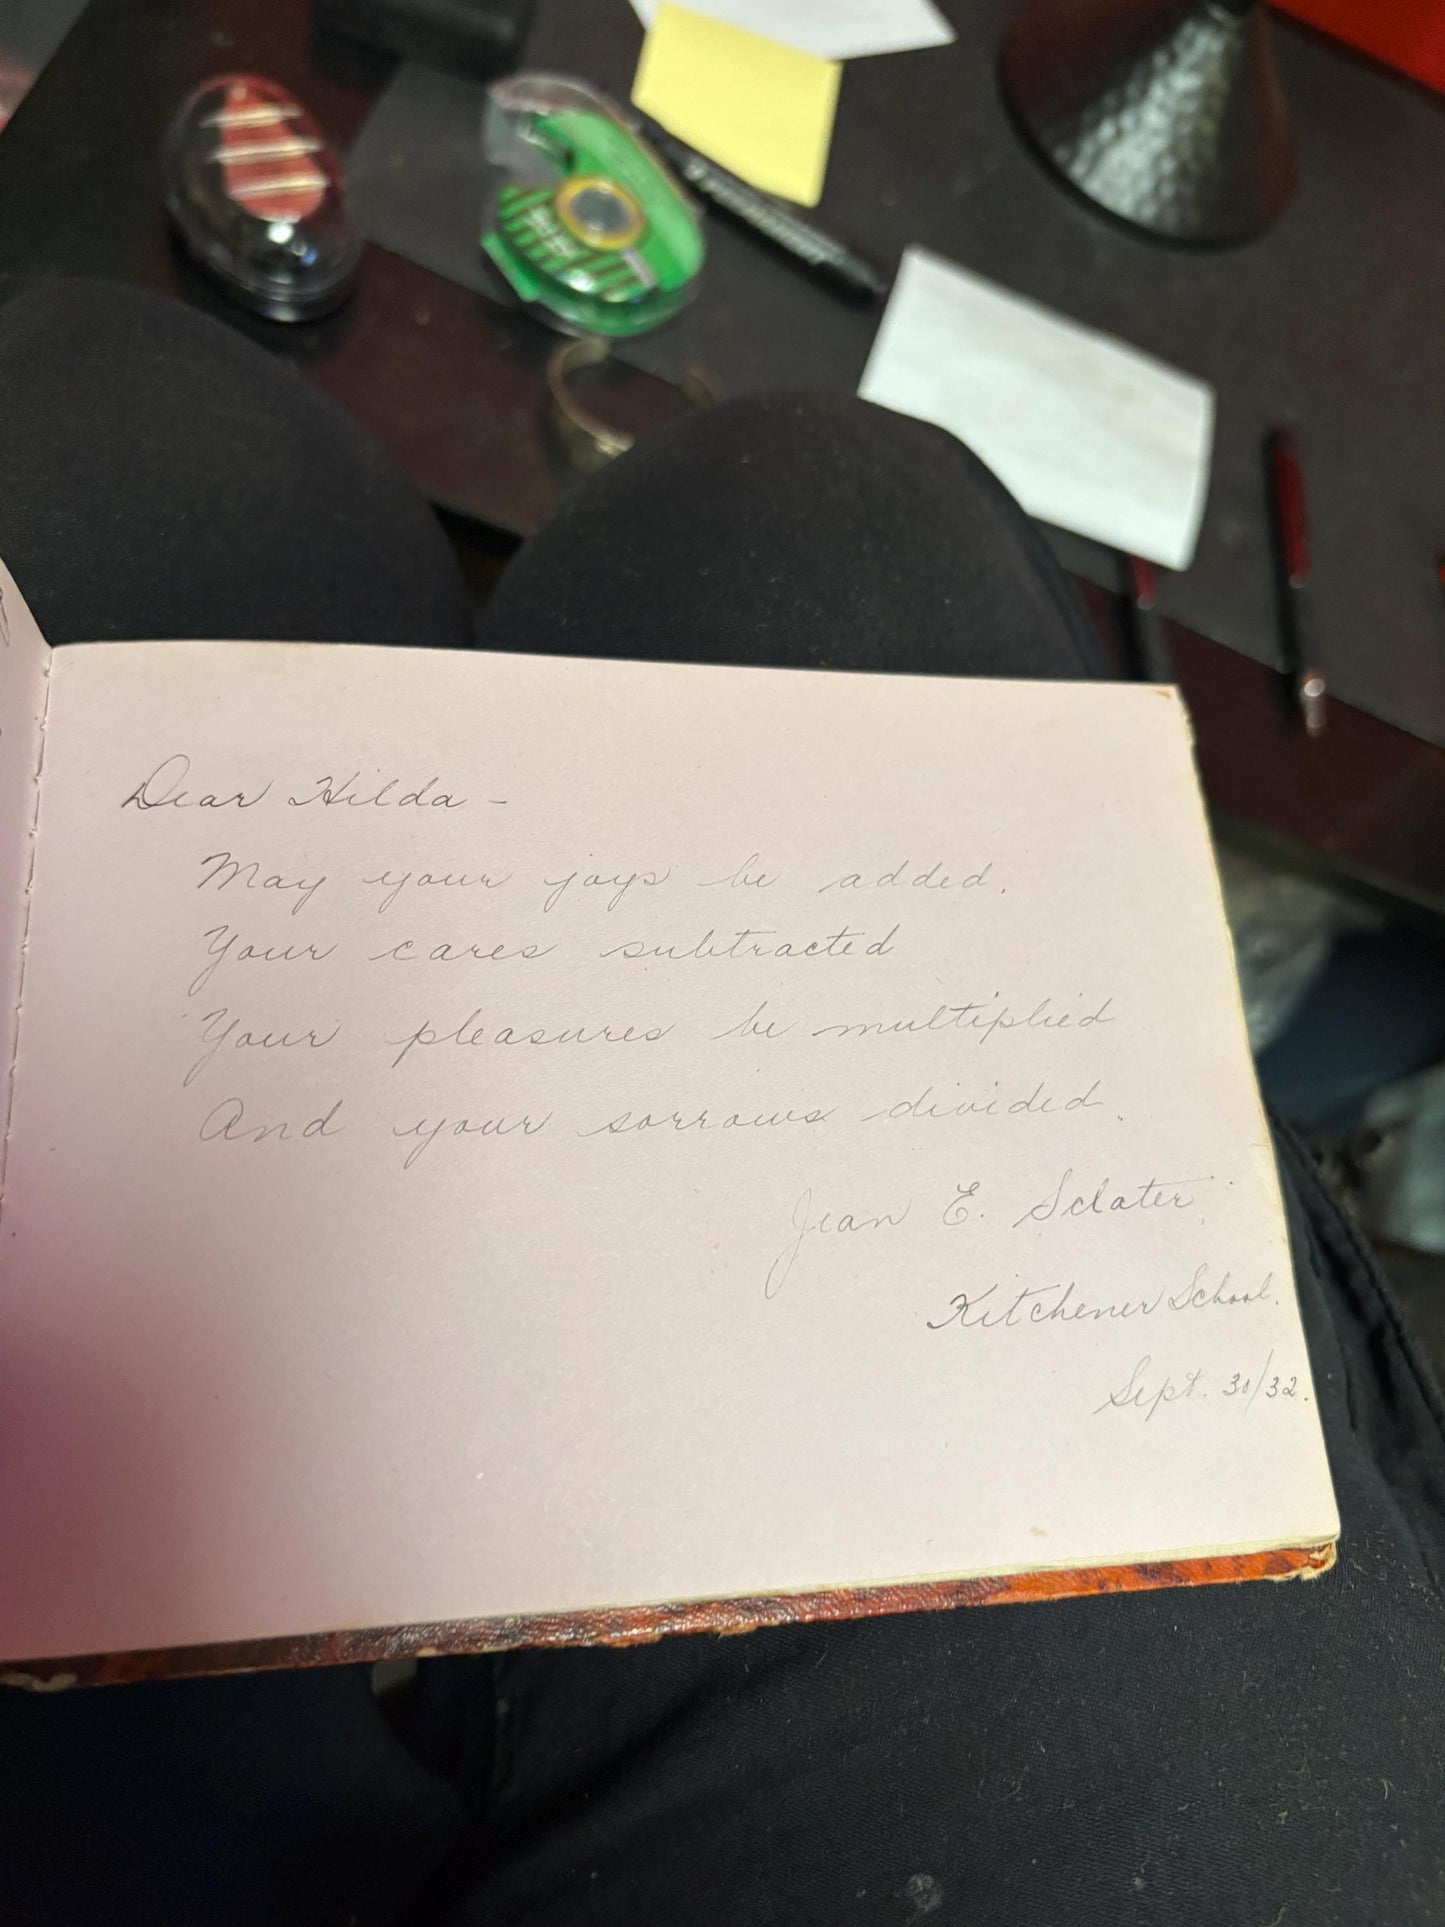 Dear Hilda -
May your joys be added.
Your cares subtracted
Your pleasures be multiplied
And your sorrows divided.
Jean E. Sclater
Kitchener School.
Sept. 30/32.